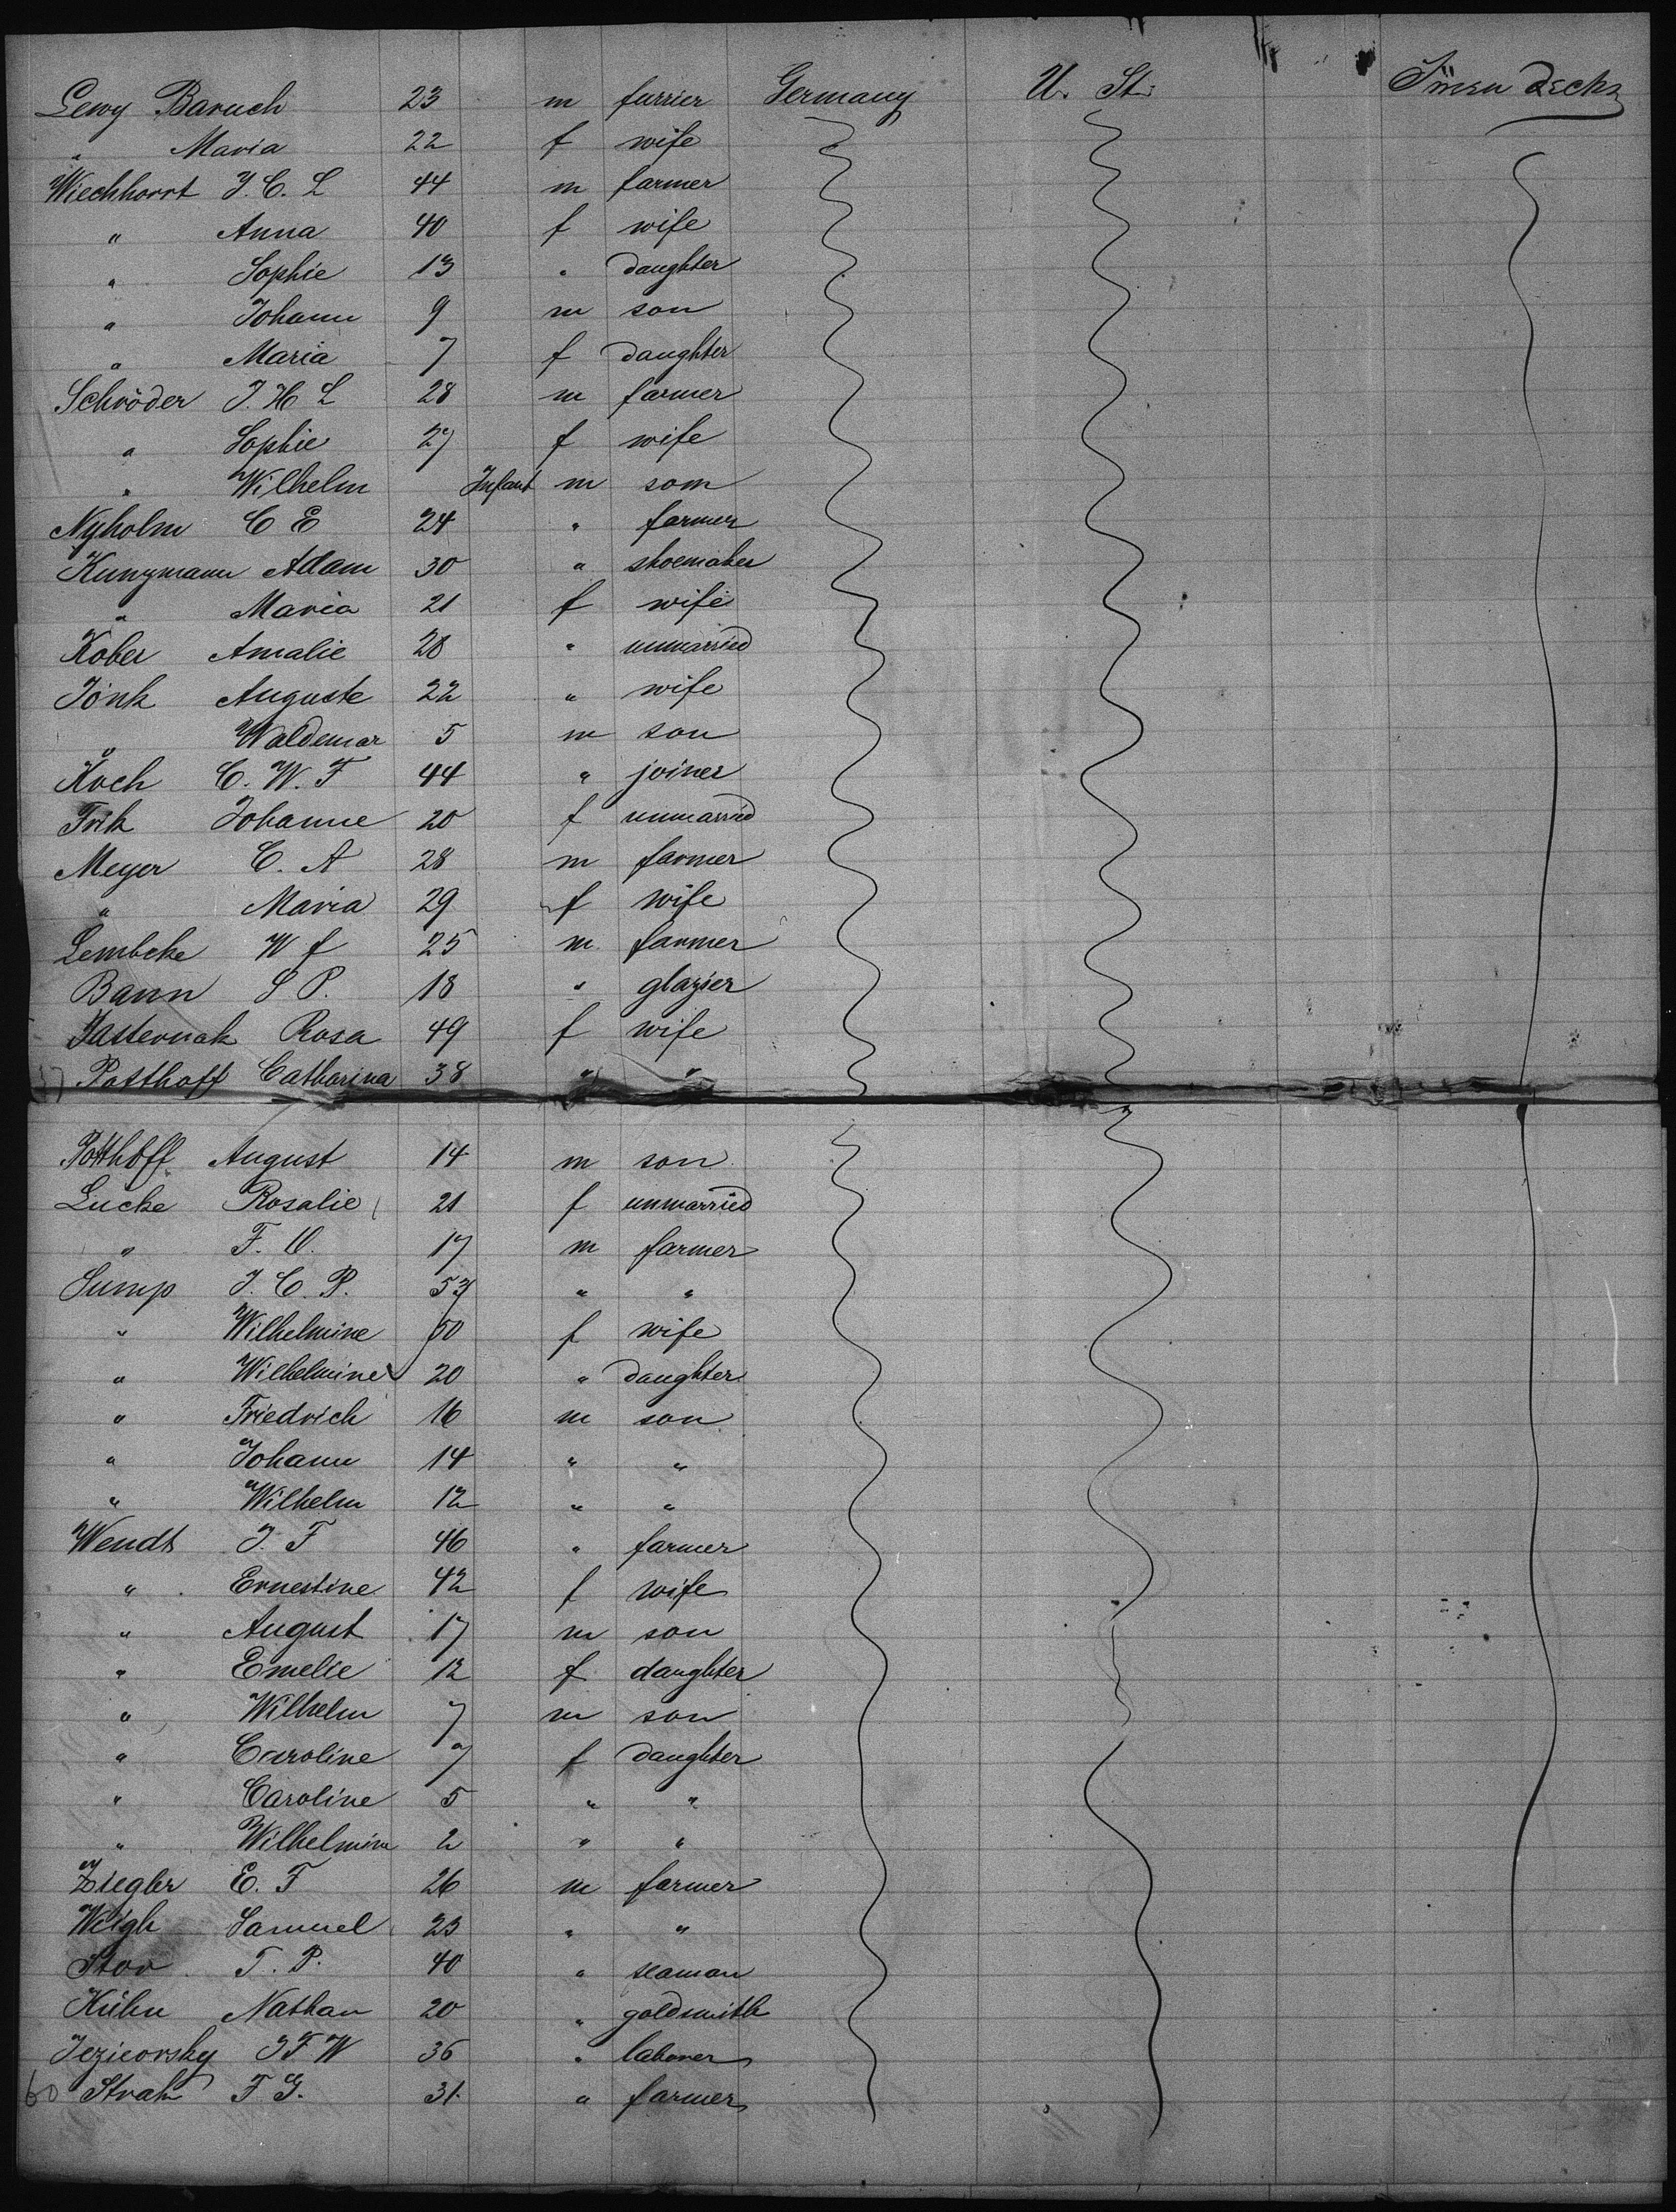 Lewy Baruch 23 m furrier Germany U. St.
" Maria 22 f wife
Wiechhorst J. C. L 44 m farmer
" Anna 40 f wife
" Sophie 13 " daughter
" Johann 9 m son
" Maria 7 f daughter
Schröder J. H L 28 m farmer
" Sophie 27 f wife
" Wilhelm Infant m som
Nyholm C E 24 " farmer
Kunzmann Adam 30 " shoemaker
" Maria 21 f wife
Kober Amalie 28 " unmarried
Jönk Auguste 22 " wife
" Waldemar 5 m son
Koch C. W. F 44 " joiner
Frik Johanne 20 f unmarried
Meyer C. A 28 m farmer
" Maria 29 f wife
Lembcke W f 25 m farmer
Bann S P. 18 " glazier
Pasternak Rosa 49 f wife
Potthoff Catharina 38 " "
Potthoff August 14 m son
Lucke Rosalie 21 f unmarried
" F. O. 17 m farmer
Sump J. C. P. 53 " "
" Wilhelmine 50 f wife
" Wilhelmine 20 " daughter
" Friedrich 16 m son
" Johann 14 " "
" Wilhelm 12 " "
Wendt J. F 46 " farmer
" Ernestine 42 f wife
" August 17 m son
" Emelie 12 f daughter
" Wilhelm 7 m son
" Caroline 7 f daughter
" Caroline 5 " "
" Wilhelmine 2 " "
Ziegler E. F 26 m farmer
Weigh Samuel 23 " "
Stov T. P. 40 " seaman
Kühn Nathan 20 " goldsmith
Jezieorsky J F W 36 " laborer
60 Strak F G. 31 " farmer